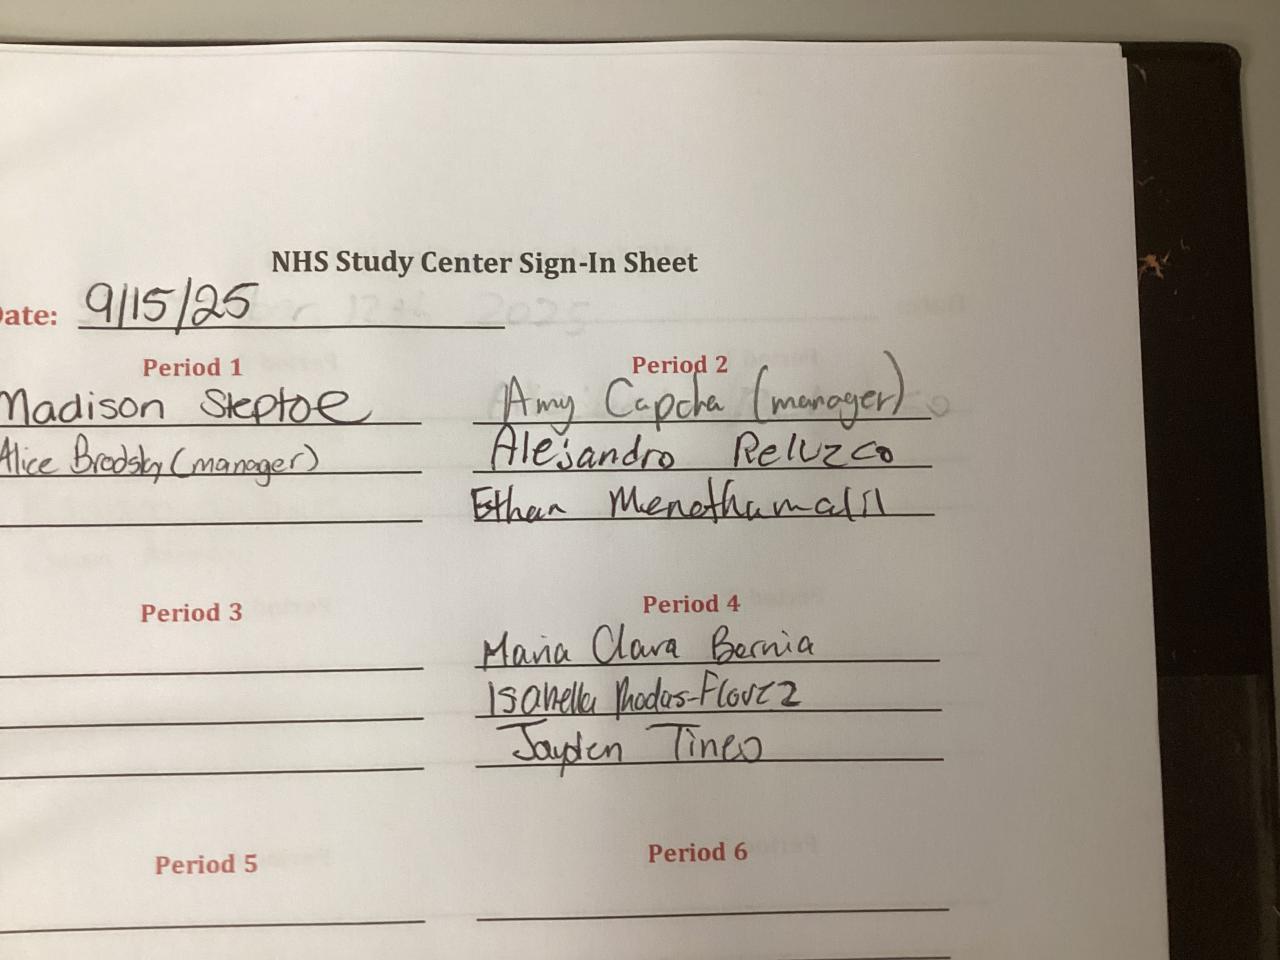 NHS Study Center Sign-In Sheet
Date: 9/15/25
Period 1
Madison Steptoe
Alice Brodsky (manager)
Period 2
Amy Capcha (manager)
Alejandro Reluzco
Ethan Menothumalil
Period 3
Period 4
Maria Clara Bernia
Isabella Rhodas-Florez
Jayden Tineo
Period 5
Period 6